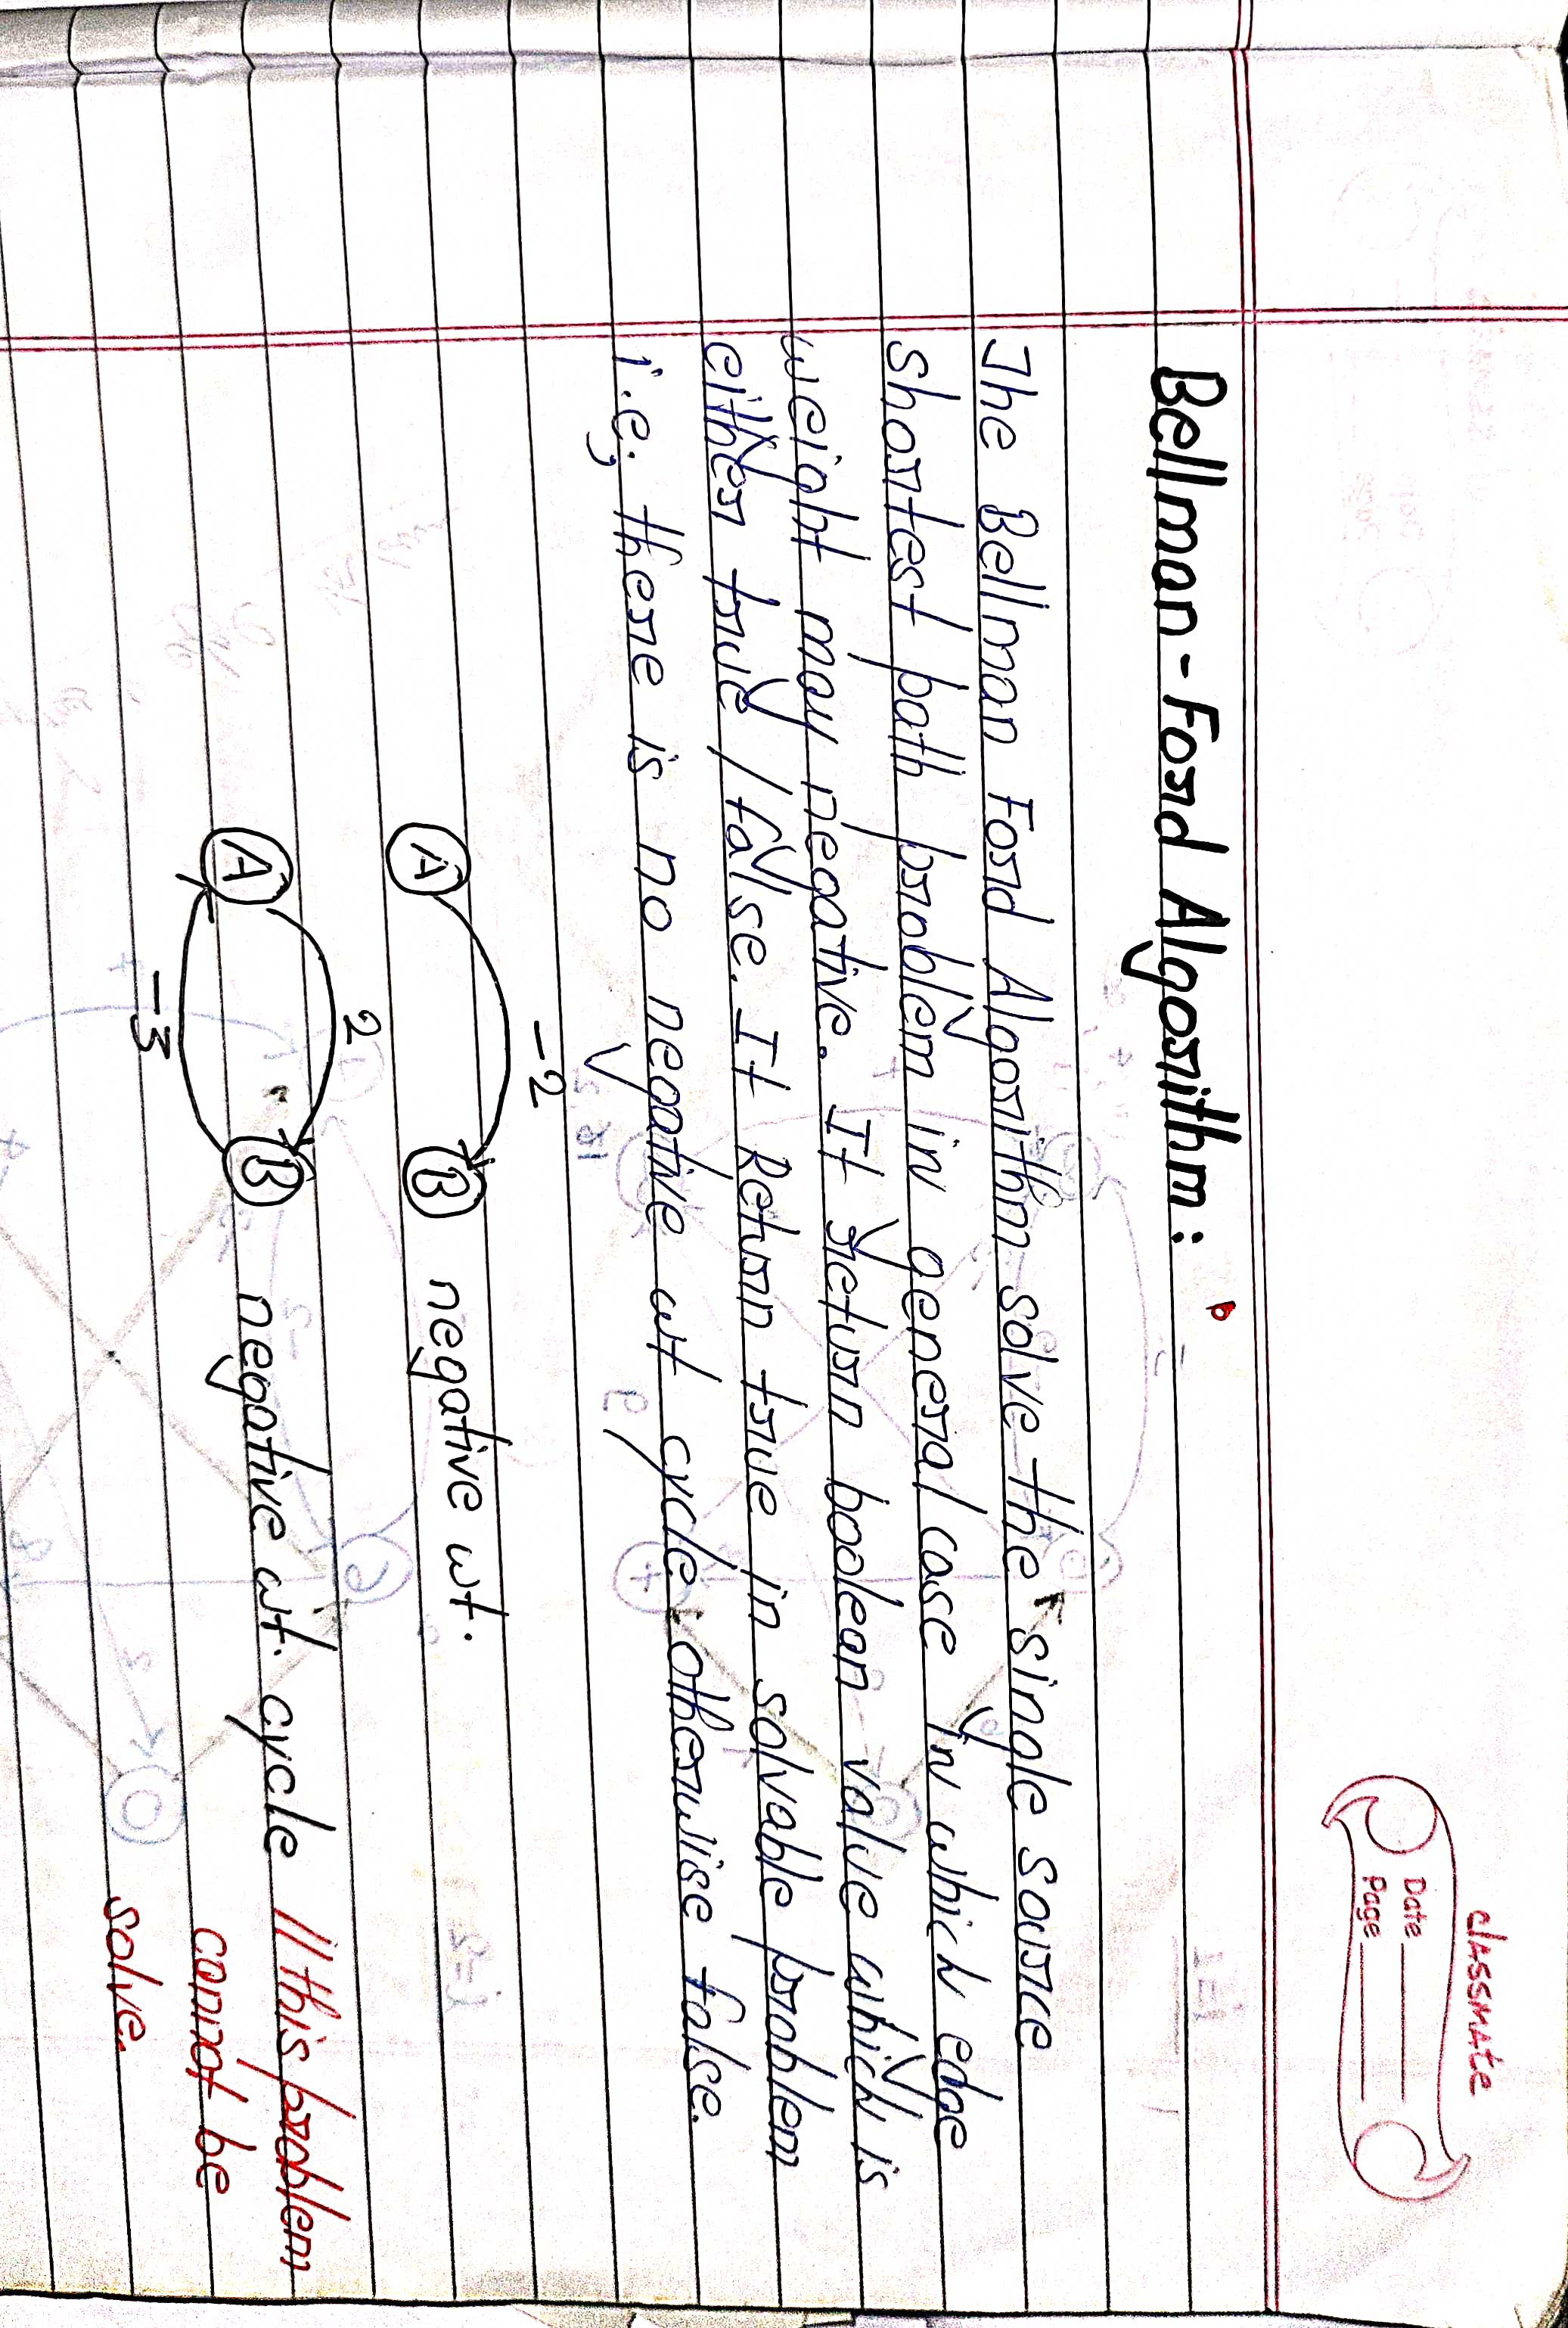 classmate
Date
Page
Bellman-Ford Algorithm:
The Bellman Ford Algorithm solve the single source
shortest path problem in general case in which edge
weight may negative. It return boolean value which is
either true/false. It Return true in solvable problem
i.e., there is no negative wt cycle otherwise false.
-2
A B negative wt.
2
A B negative wt. cycle //this problem
-3 cannot be
solve.